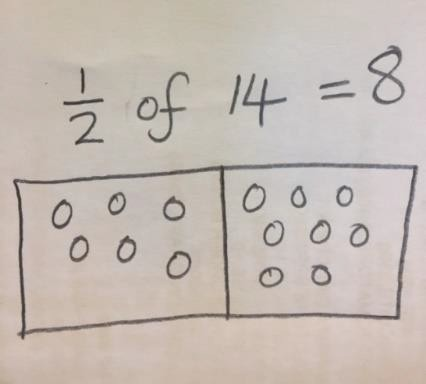 1/2 of 14 = 8